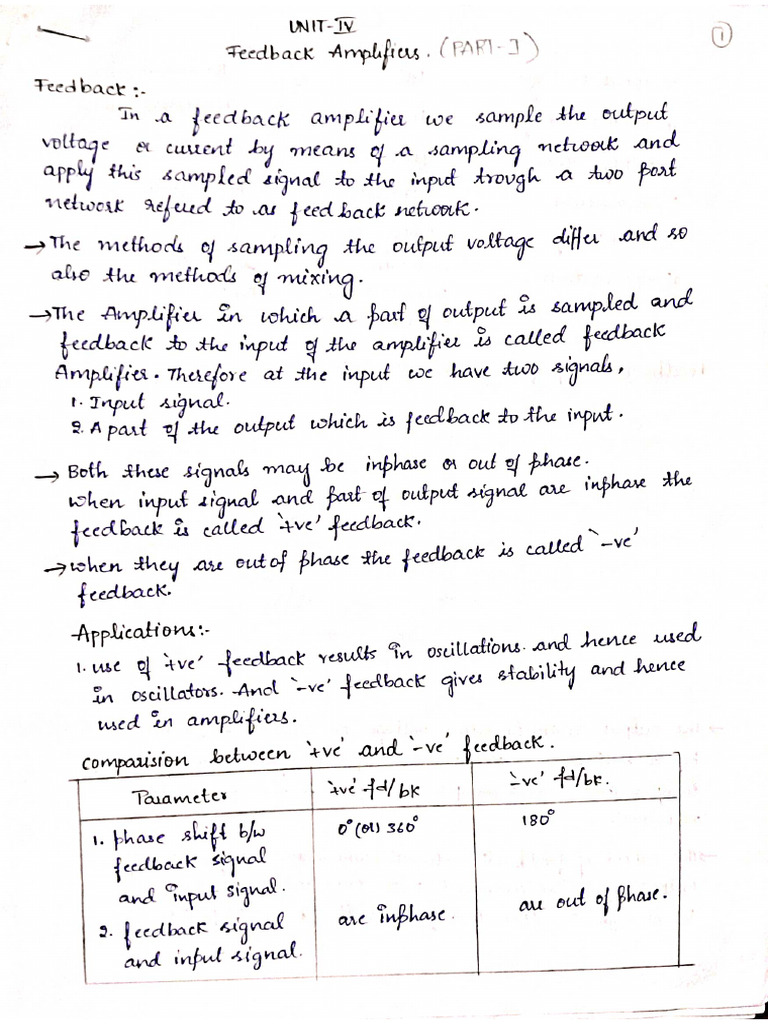 UNIT-IV
Feedback Amplifiers. (PART-I)
1
Feedback:-
In a feedback amplifier we sample the output
voltage or current by means of a sampling network and
apply this sampled signal to the input trough a two port
network refered to as feed back network.
→ The methods of sampling the output voltage differ and so
also the methods of mixing.
→ The Amplifier in which a part of output is sampled and
feedback to the input of the amplifier is called feedback
Amplifier. Therefore at the input we have two signals,
1. Input signal.
2. A part of the output which is feedback to the input.
→ Both these signals may be inphase or out of phase.
when input signal and part of output signal are inphase the
feedback is called '+ve' feedback.
→ when they are out of phase the feedback is called '-ve'
feedback.
Applications:-
1. use of '+ve' feedback results in oscillations. and hence used
in oscillators. And '-ve' feedback gives stability and hence
used in amplifiers.
comparision between '+ve' and '-ve' feedback.
Parameter '+ve' fd/bk '-ve' fd/bk.
1. phase shift b/w 0° (or) 360° 180°
feedback signal
and input signal.
2. feedback signal are inphase. are out of phase.
and input signal.